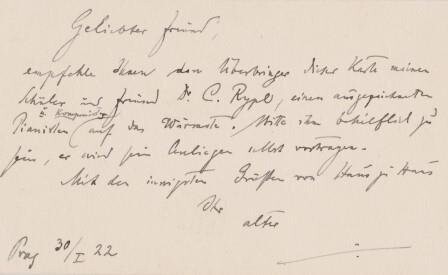 Geliebter Freund,
empfehle Ihnen den Überbringer dieser Karte meinen
Schüler und Freund Dr. C. Rypl, einen ausgezeichneten
u. Komponisten
Pianisten auf das Wärmste. Bitte ihm behilflich zu
sein, er wird sein Anliegen selbst vortragen.
Mit den innigsten Grüßen von Haus zu Haus
Ihr
alter
Prag 30/I 22